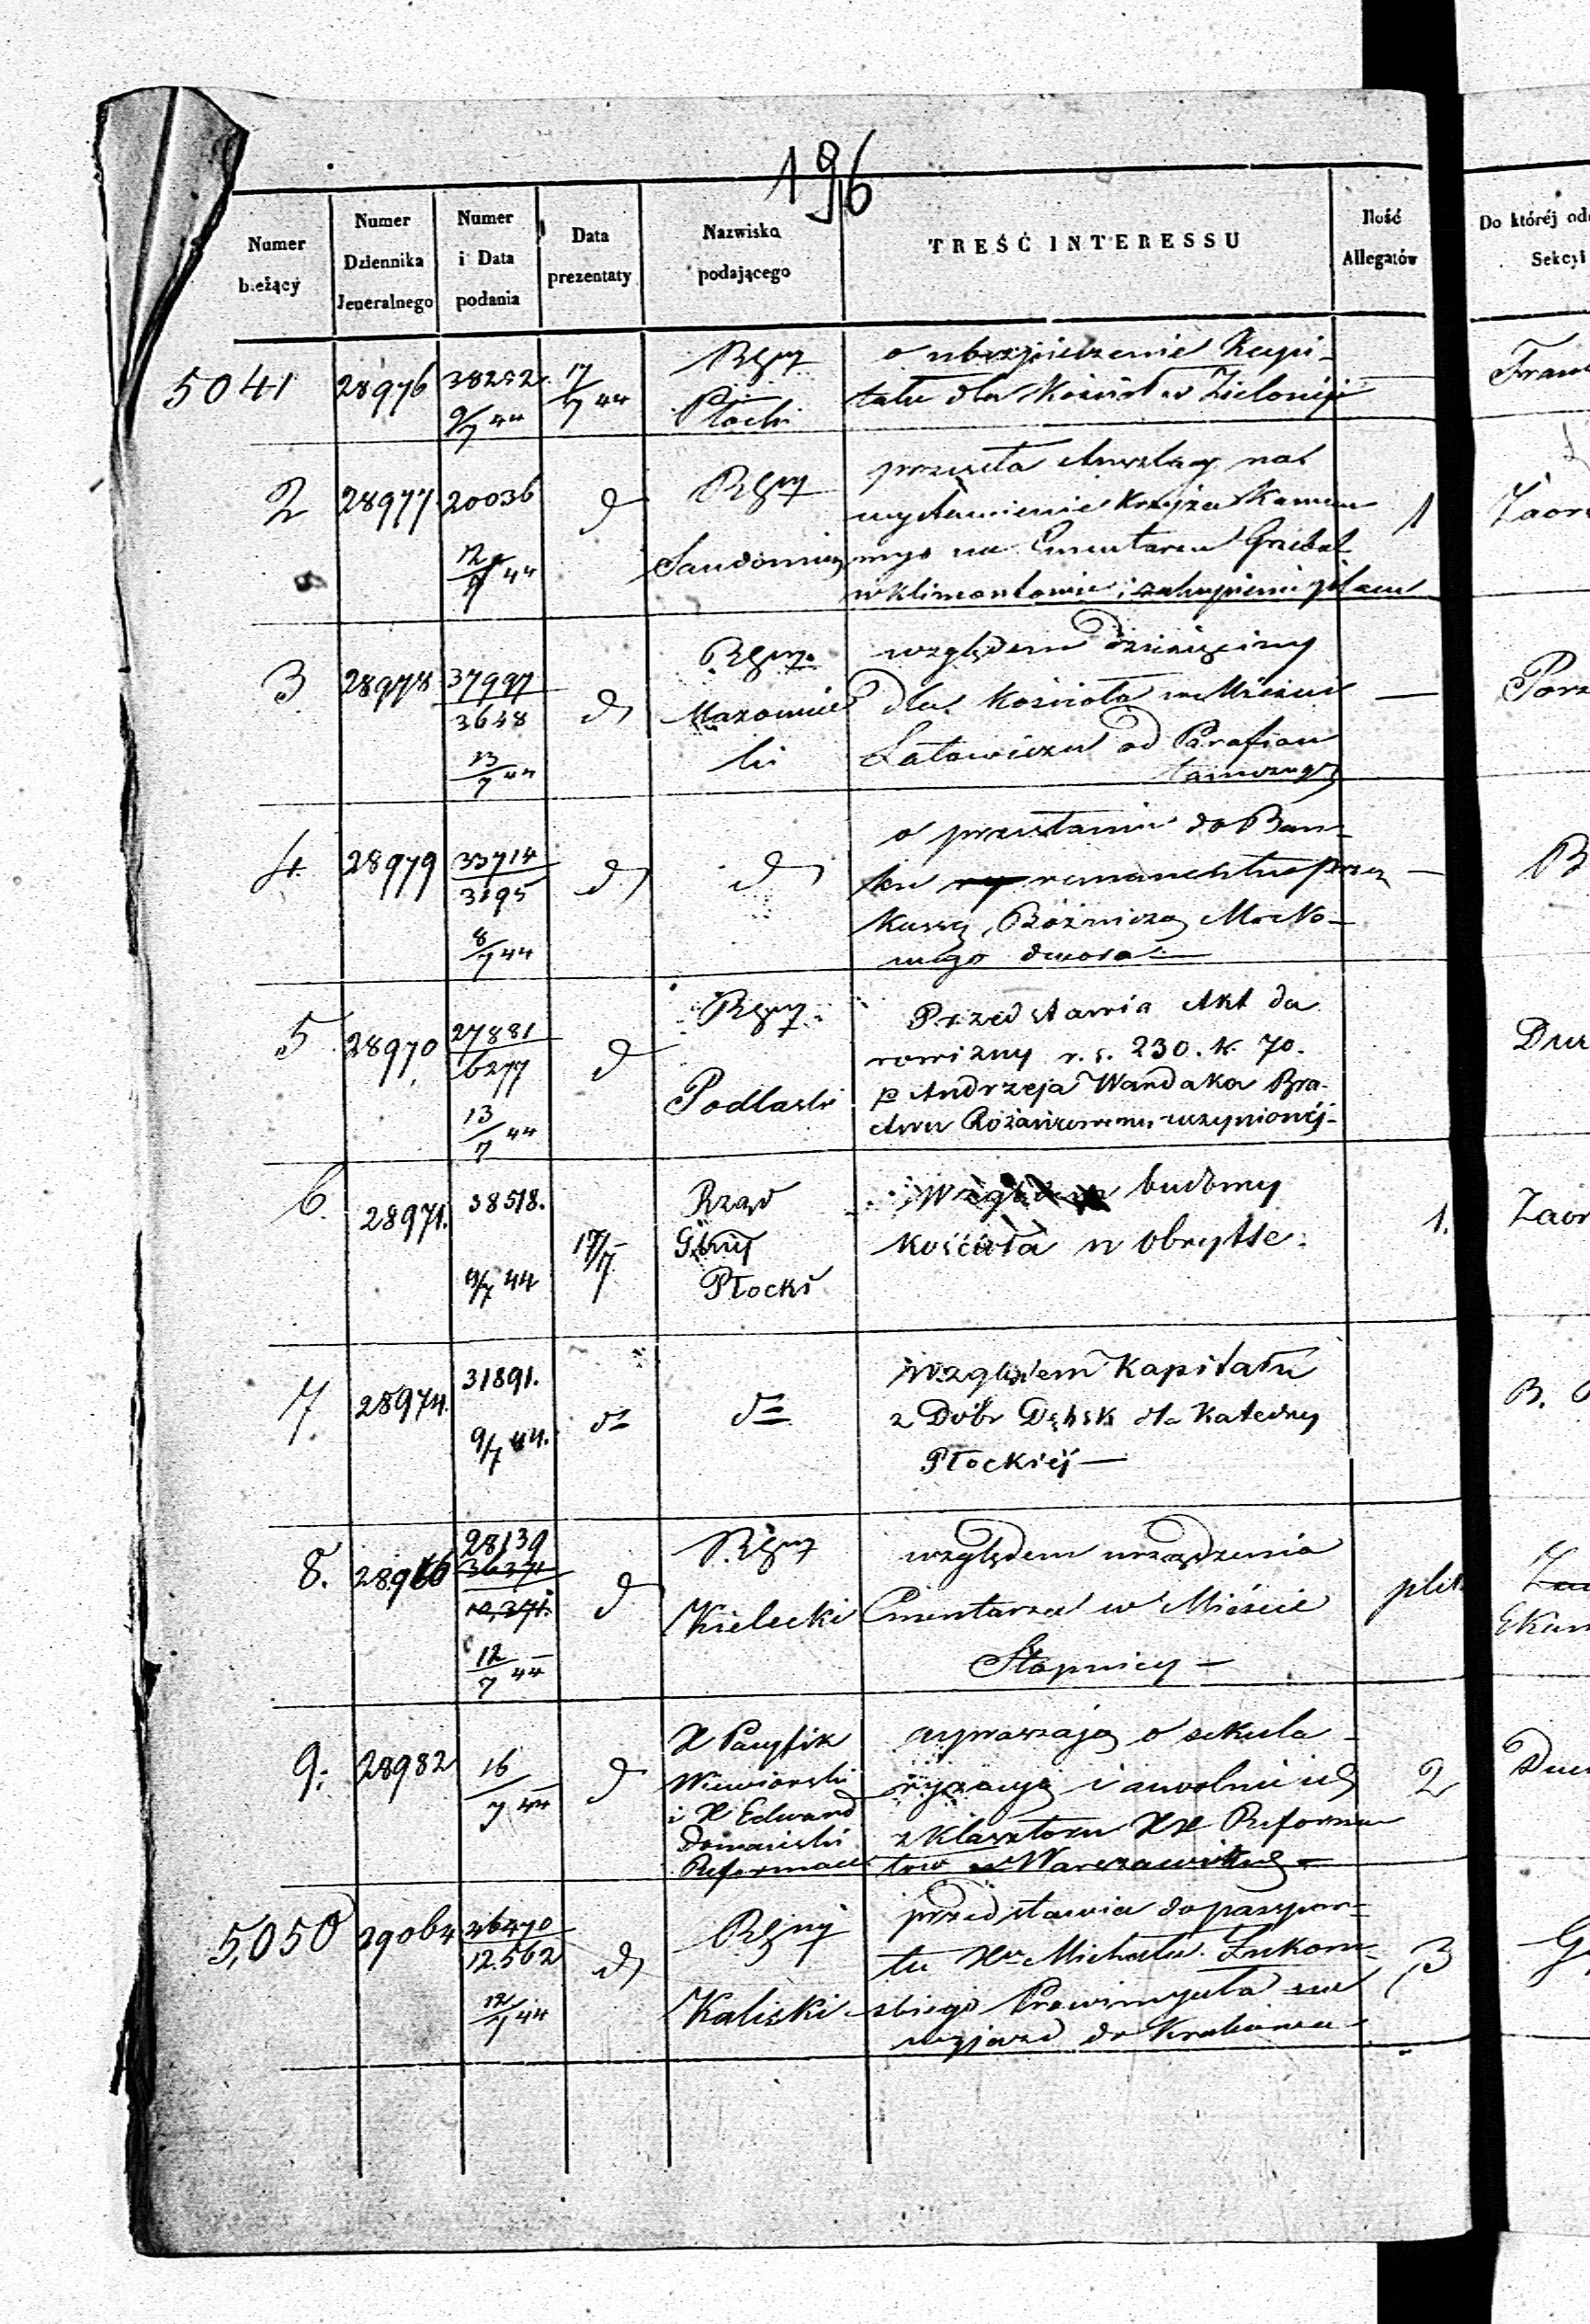 196
Numer bieżący
Numer Dziennika Jeneralnego
Numer i Data podania
Data prezentaty
Nazwisko podającego
TREŚĆ INTERESSU
Ilość Allegatów
Do któréj
Sekcyi
5041 28976 38252 9/7 44 17/7 44
Płocki
o ubezpieczenie Kapi-
tału dla Kościoła w Zielonej
2 28977 20036 12/7 44 d
Sandomier
przesyła
wystawienie Krzyża Kamien
nego na Cmentarzu Grzebal
w Klimontowie i zakupienie placu
1
3 28978 37997 3648 13/7 44 d
Mazowiec
ki
względem dziesięciny
dla Kościoła w Mieście
Latowiczu od Parafian
tamecznych
—
4 28979 33714 3195 8/7 44 d d
o przesłanie do Ban-
ku remanentu przez
Kassę Bóżniczą M. No-
wego dwora
—
B
5 28970 27881 6277 13/7 44 d
Podlaski
Przedstawia Akt da
rowizny r. s. 230. k. 70.
p Andrzeja Wandaka Bra-
ctwu Różańcowemu uczynionéj-
6. 28971. 38518. 9/7 44 17/7
Rząd
Gbny
Płocki
Względem budowy
kościoła w Obrytte.
1.
7. 28974. 31891. 9/7 44. do do
Względem Kapitału
z Dóbr Dębsk dla Katedry
Płockiéj —
B.
8. 28966 28139 36371 12/7 44 d
Kielecki
względem urządzenia
Cmentarza w Mieście
Stopnicy —
plik
9. 28982 16/7 44 d
X Pacyfik
Wiewiorski
i X Edward
Domański
Reformaci
upraszają o sekula-
ryzacyę i uwolnienie ich
z Klasztoru XX Reforma
tow w Warszawie
2
5,050 29064 36470 12.562 12/7 44 d
Kaliski
przedstawia do paszpor-
tu Xa Michała Łukom-
skiego Prowincyała na
wyjazd do Krakowa
3